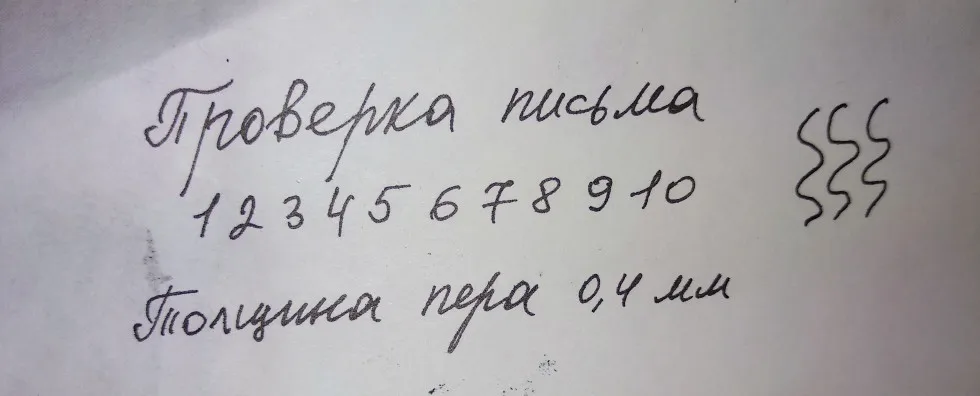 Проверка письма
1 2 3 4 5 6 7 8 9 10
Толщина пера 0,4 мм